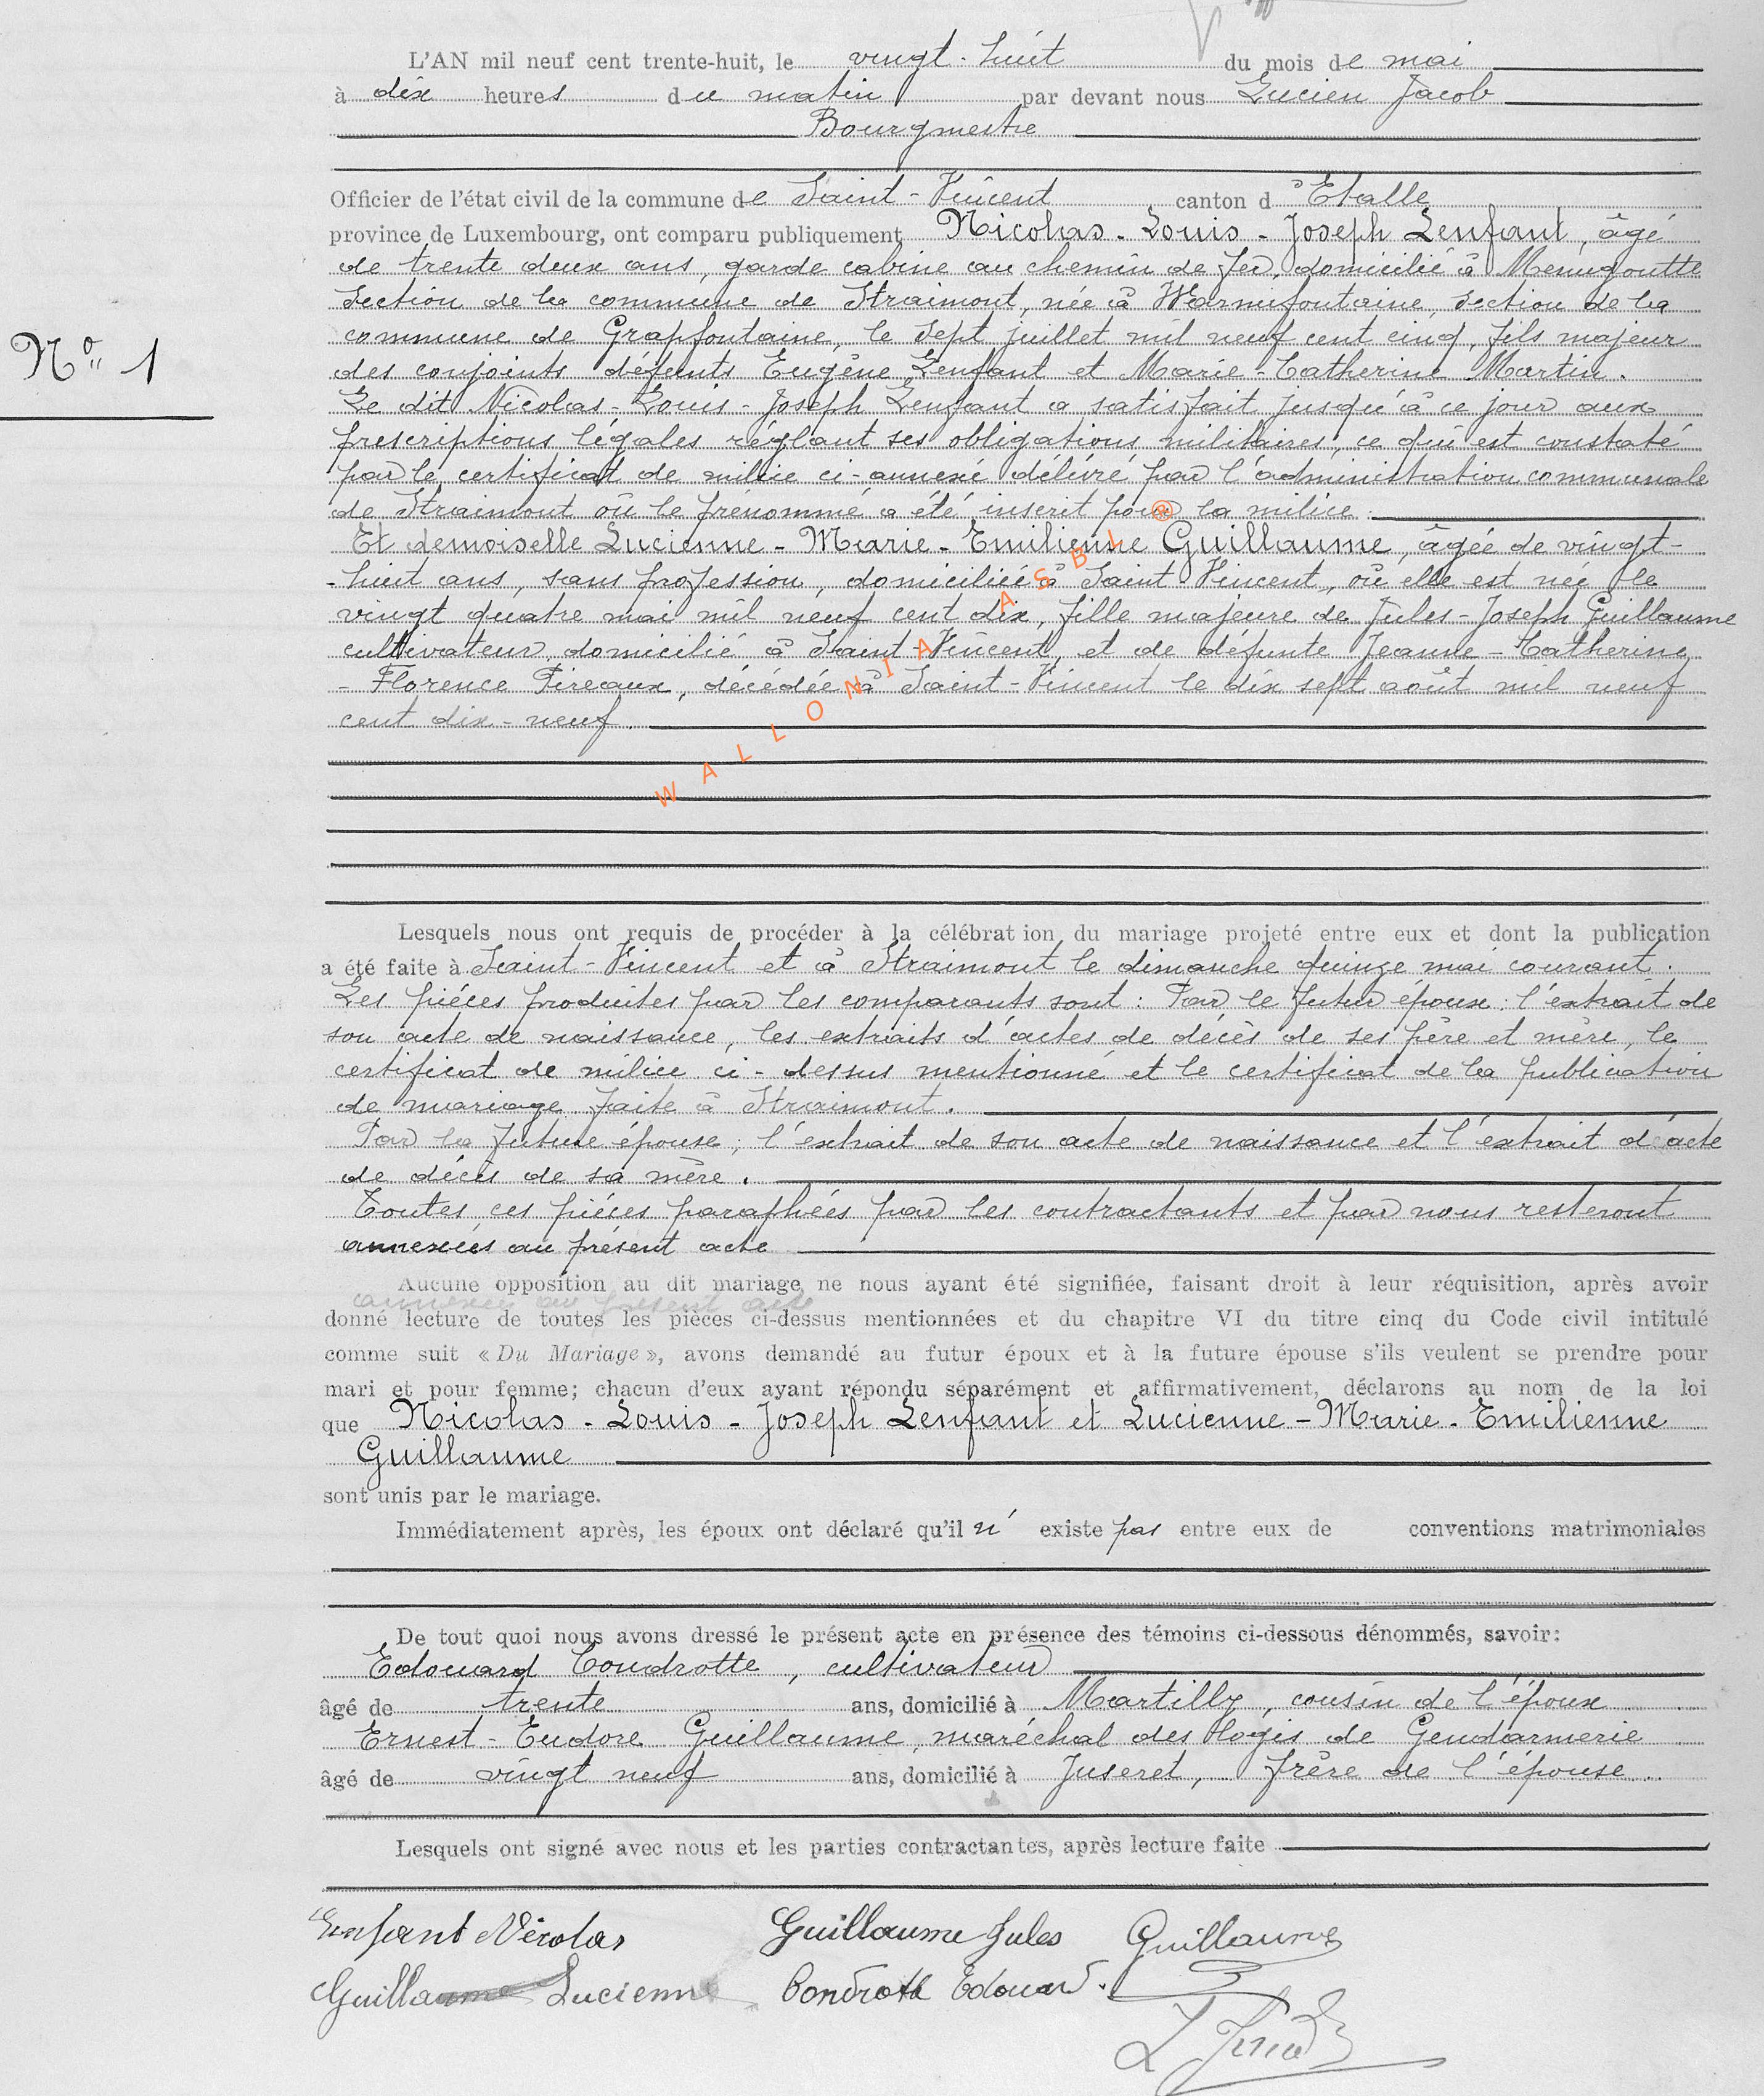 L'AN mil neuf cent trente-huit, le vingt-huit du mois de mai
à dix heures du matin par devant nous Lucien Jacob
Bourgmestre
Officier de l'état civil de la commune de Saint-Vincent canton d'Etalle
province de Luxembourg, ont comparu publiquement Nicolas-Louis-Joseph Lenfant, âgé
de trente deux ans, garde cabine au chemin de fer, domicilié à Menugoutte
section de la commune de Straimont, née à Warmifontaine, section de la
Nº 1
commune de Grapfontaine, le sept juillet mil neuf cent cinq, fils majeur
des conjoints défunts Eugène Lenfant et Marie-Catherine Martin.
Le dit Nicolas-Louis-Joseph Lenfant a satisfait jusqu'à ce jour aux
prescriptions légales réglant ses obligations militaires, ce qui est constaté
par le certificat de milice ci-annexé délivré par l'administration communale
de Straimont où le prénommé a été inscrit pour la milice.
Et demoiselle Lucienne-Marie-Emilienne Guillaume, âgée de vingt-
-huit ans, sans profession, domiciliée à Saint-Vincent, où elle est née le
vingt quatre mai mil neuf cent dix, fille majeure de Jules-Joseph Guillaume
cultivateur, domicilié à Saint-Vincent, et de défunte Jeanne-Catherine
-Florence Pireaux, décédée à Saint-Vincent le dix sept août mil neuf
cent dix-neuf.
WALLONIA ASBL ®
Lesquels nous ont requis de procéder à la célébration du mariage projeté entre eux et dont la publication
a été faite à Saint-Vincent et à Straimont le dimanche quinze mai courant.
Les pièces produites par les comparants sont: Par le futur époux: l'extrait de
son acte de naissance, les extraits d'actes de décès de ses père et mère, le
certificat de milice ci-dessus mentionné et le certificat de la publication
de mariage faite à Straimont.
Par la future épouse; l'extrait de son acte de naissance et l'extrait d'acte
de décès de sa mère.
Toutes ces pièces paraphées par les contractants et par nous resteront
annexées au présent acte
Aucune opposition au dit mariage ne nous ayant été signifiée, faisant droit à leur réquisition, après avoir
annexées au présent acte
donné lecture de toutes les pièces ci-dessus mentionnées et du chapitre VI du titre cinq du Code civil intitulé
comme suit « Du Mariage », avons demandé au futur époux et à la future épouse s'ils veulent se prendre pour
mari et pour femme; chacun d'eux ayant répondu séparément et affirmativement, déclarons au nom de la loi
que Nicolas-Louis-Joseph Lenfant et Lucienne-Marie-Emilienne
Guillaume
sont unis par le mariage.
Immédiatement après, les époux ont déclaré qu'il n' existe pas entre eux de conventions matrimoniales
De tout quoi nous avons dressé le présent acte en présence des témoins ci-dessous dénommés, savoir:
Edouard Condrotte, cultivateur
âgé de trente ans, domicilié à Martilly, cousin de l'époux
Ernest-Eudore Guillaume, maréchal des logis de Gendarmerie
âgé de vingt neuf ans, domicilié à Juseret, frère de l'épouse
Lesquels ont signé avec nous et les parties contractantes, après lecture faite
Lenfant Nicolas Guillaume Jules Guillaume
Guillaume Lucienne Condrotte Edouard.